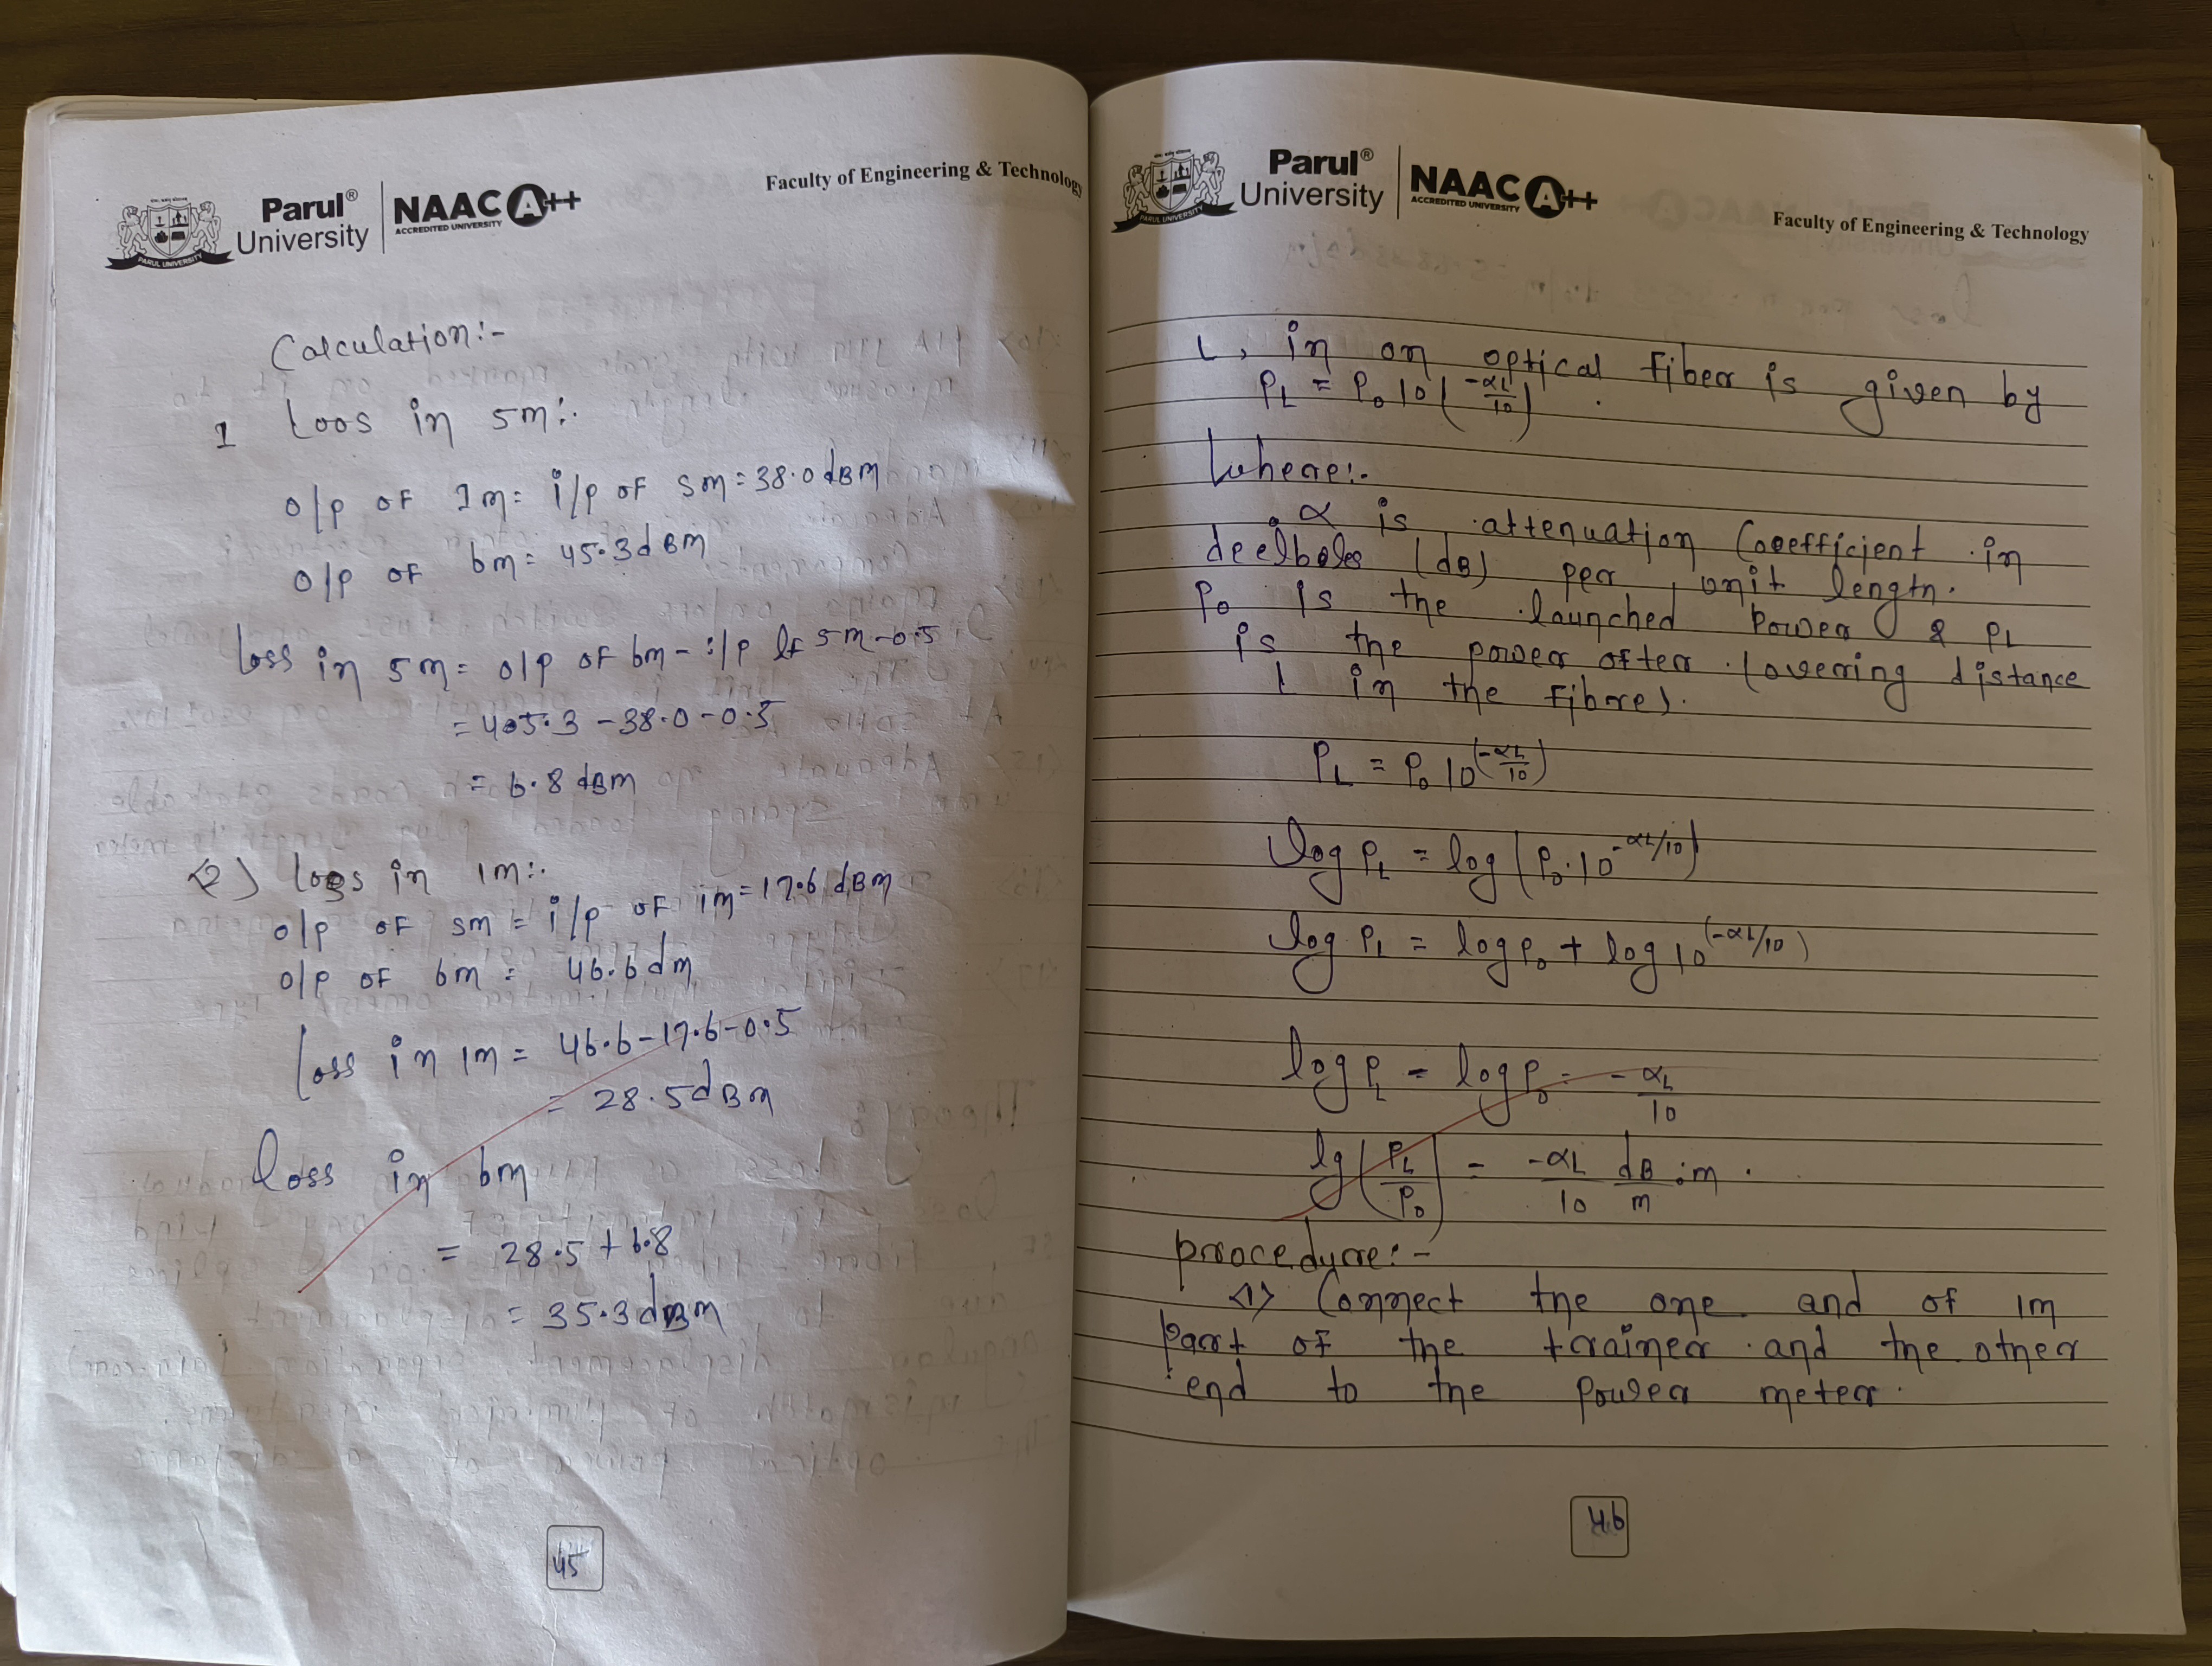 Parul® University
NAAC A++
ACCREDITED UNIVERSITY
PARUL UNIVERSITY
Faculty of Engineering & Technology
Calculation:-
1 Loos in 5m:.
o/p of 1m = i/p of 5m = 38.0 dBm
o/p of 6m = 45.3 dBm
loss in 5m = o/p of 6m - i/p of 5m - 0.5
= 45.3 - 38.0 - 0.5
= 6.8 dBm
<2> loss in 1m:.
o/p of 5m = i/p of 1m = 17.6 dBm
o/p of 6m = 46.6 dm
loss in 1m = 46.6 - 17.6 - 0.5
= 28.5 dBm
loss in 6m
= 28.5 + 6.8
= 35.3 dBm
45
Parul® University
NAAC A++
ACCREDITED UNIVERSITY
PARUL UNIVERSITY
Faculty of Engineering & Technology
L, in on optical fiber is given by
PL = P0 10 (-αL/10)
Where:-
α is attenuation Coeefficient in
(dB) per unit length.
P0 is the launched Power & PL
is the power after Covering distance
L in the fibre).
PL = P0 10 (-αL/10)
log PL = log (P0.10 -αL/10)
log PL = log P0 + log 10 (-αL/10)
log PL - log P0 = -αL/10
lg (PL/P0) = -αL/10 dB/m :m .
procedure:-
<1> Connect the one and of 1m
Part of the trainer and the other
end to the Power meter.
46